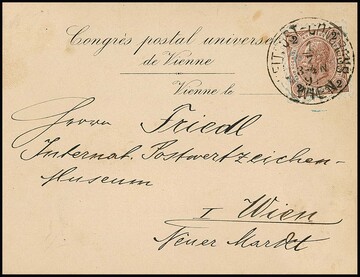 Congrès postal universel
de Vienne
Vienne le
WIEN
Herrn Friedl
Internat. Postwertzeichen-
Museum
I Wien
Neuer Markt